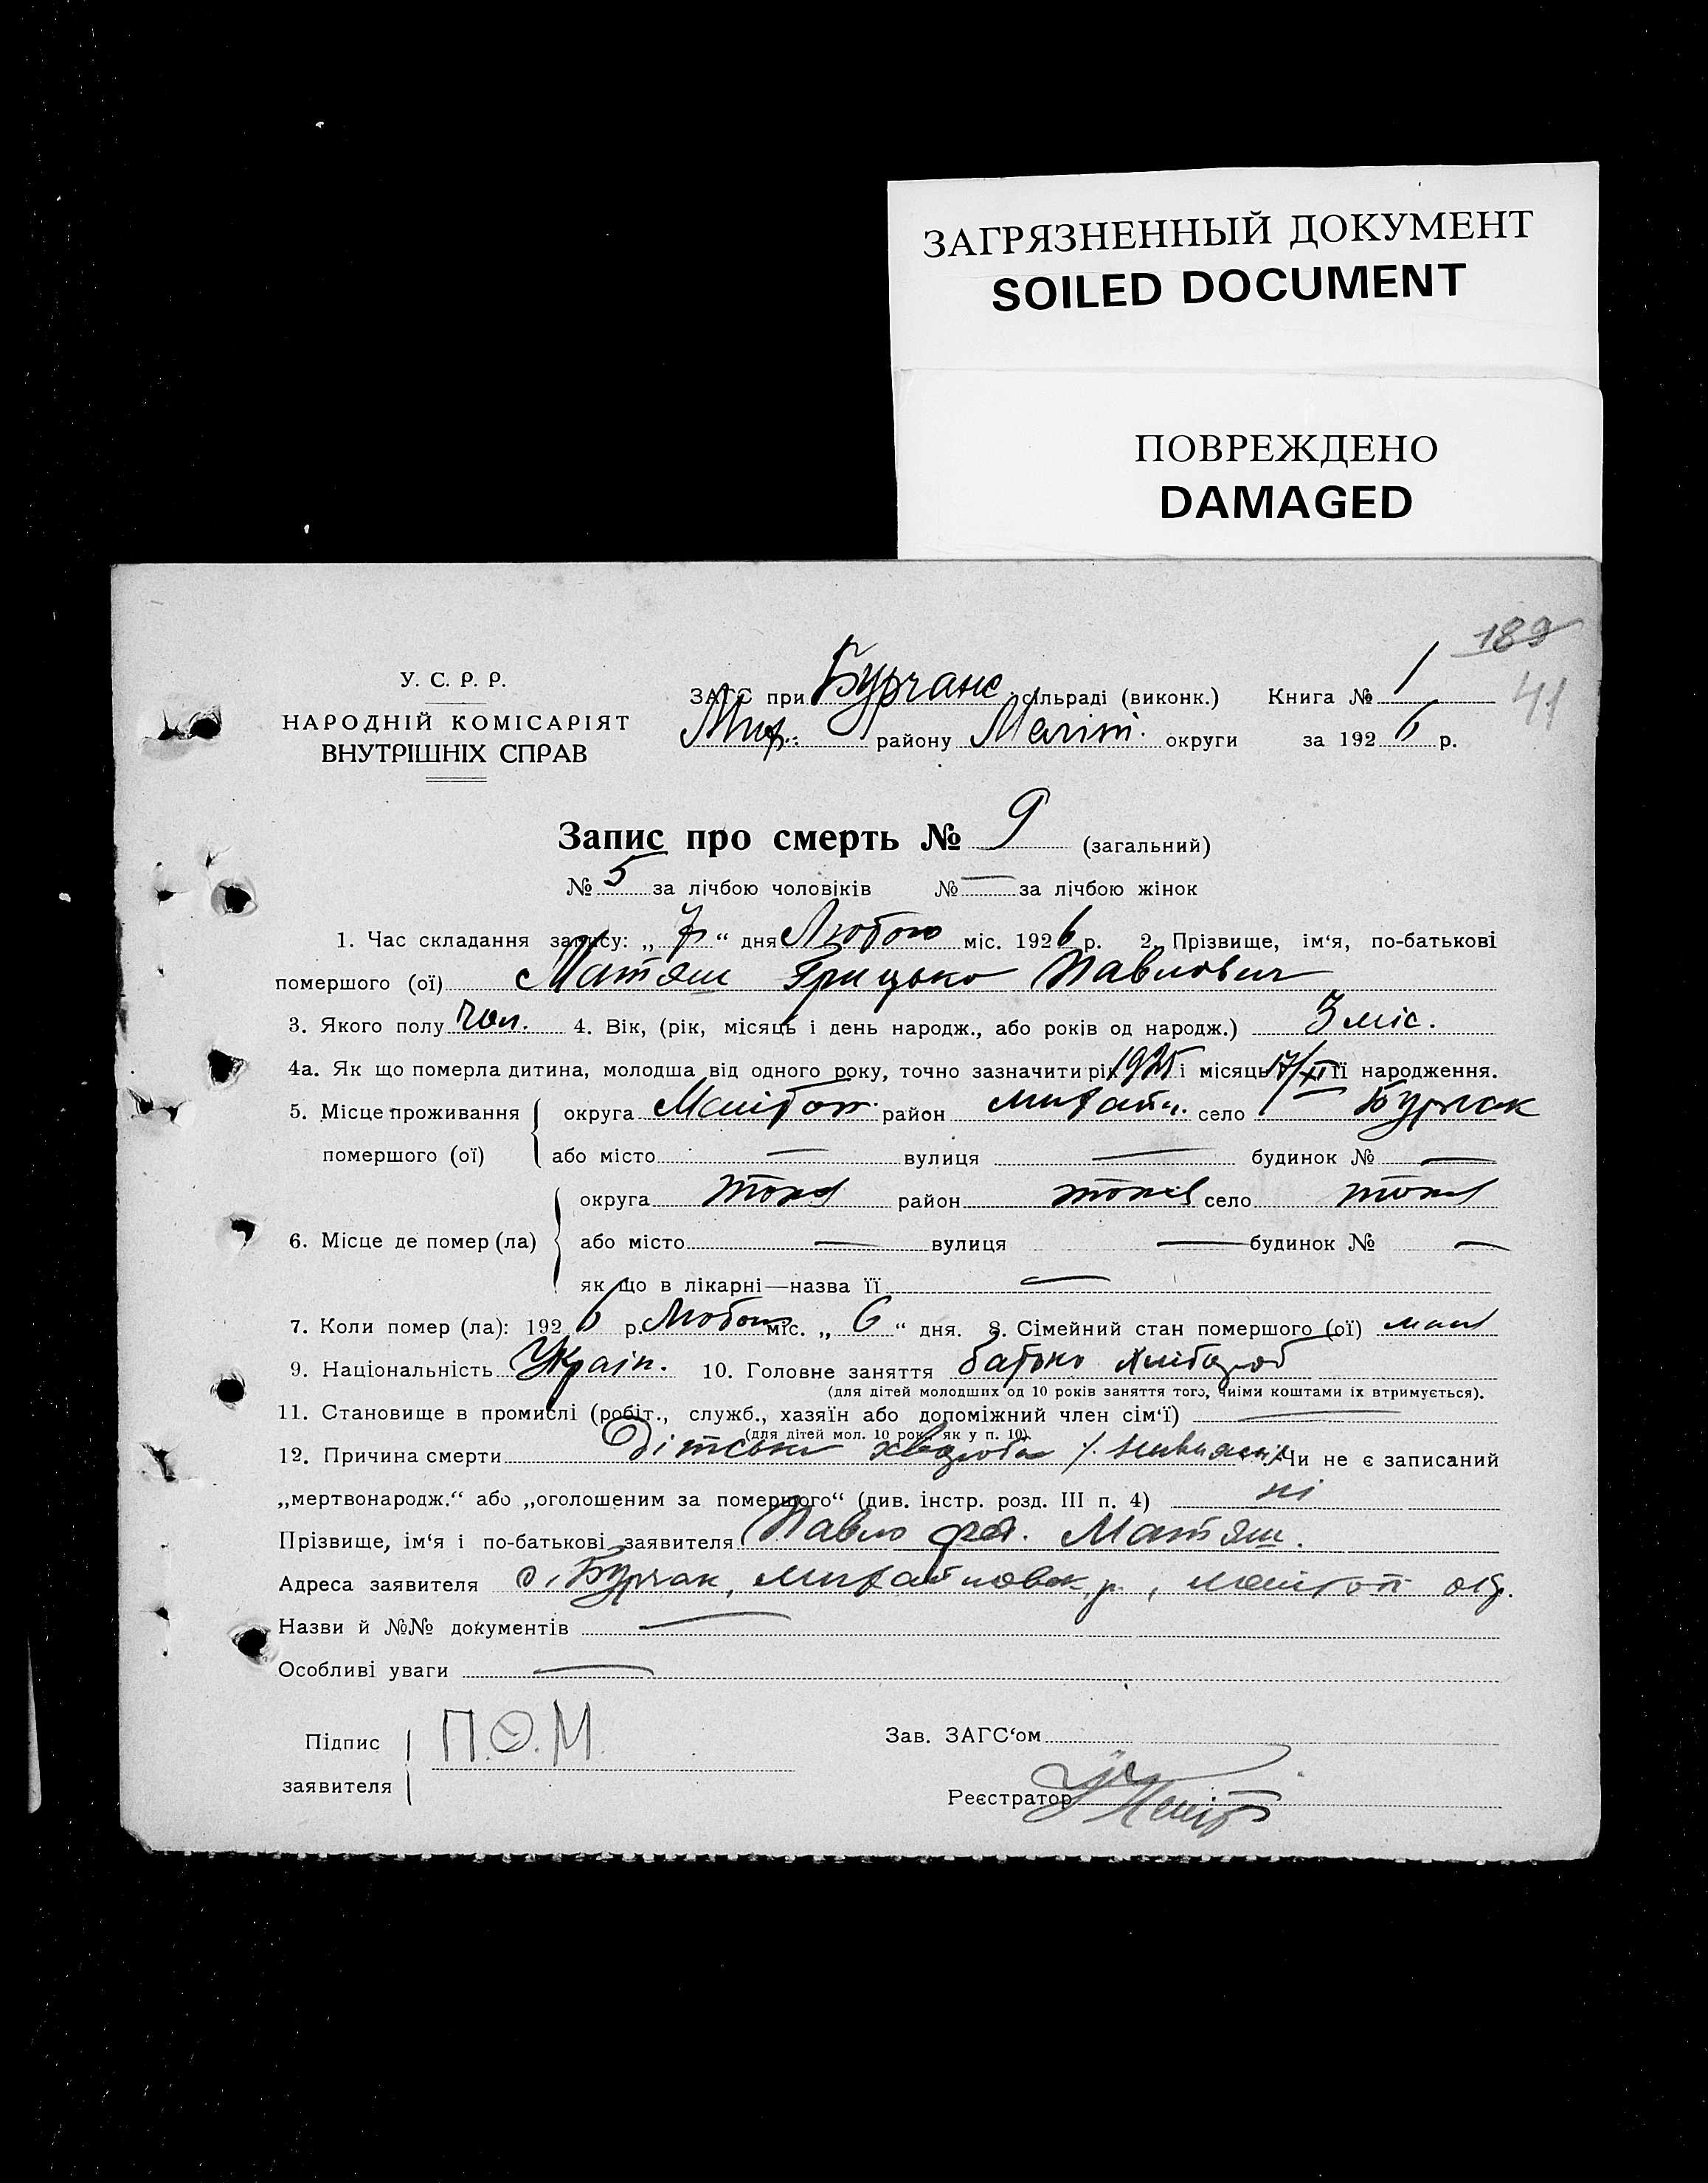 ЗАГРЯЗНЕННЫЙ ДОКУМЕНТ
SOILED DOCUMENT
ПОВРЕЖДЕНО
DAMAGED
189
41
У. С. Р. Р.
НАРОДНІЙ КОМІСАРІЯТ
ВНУТРІШНІХ СПРАВ
ЗАГС при Бурчанс. сільраді (виконк.) Книга № 1
Мих. району Меліт. округи за 1926 р.
Запис про смерть № 9 (загальний)
№ 5 за лічбою чоловіків № — за лічбою жінок
1. Час складання запису: „ 7 “ дня Лютого міс. 1926 р. 2. Прізвище, ім‘я, по-батькові
помершого (ої) Матяш Грицько Павлович
3. Якого полу чол. 4. Вік, (рік, місяць і день народж., або років од народж.) 3 міс.
4а. Як що померла дитина, молодша від одного року, точно зазначити рік 1925 і місяць 17/XI її народження.
5. Місце проживання округа Мелітоп. район Михайл. село Бурчак
помершого (ої) або місто — вулиця — будинок № —
округа тоже район тоже село тоже
6. Місце де помер (ла) або місто — вулиця — будинок № —
як що в лікарні—назва її —
7. Коли помер (ла): 1926 р. Лютого міс. „ 6 “ дня. 8. Сімейний стан помершого (ої)
9. Національність Україн. 10. Головне заняття батько хлібороб
(для дітей молодших од 10 років заняття того, чиїми коштами їх втримується).
11. Становище в промислі (робіт., служб., хазяїн або допоміжний член сім‘ї) —
(для дітей мол. 10 рок., як у п. 10).
12. Причина смерти Дітська хвороба Чи не є записаний
„мертвонародж.“ або „оголошеним за помершого“ (див. інстр. розд. III п. 4) ні
Прізвище, ім‘я і по-батькові заявителя Павло Фед. Матяш.
Адреса заявителя с. Бурчак, Михайловск. р., Мелітоп окр.
Назви й №№ документів —
Особливі уваги —
Підпис
заявителя
П.Ѳ.М.
Зав. ЗАГС‘ом
Реєстратор